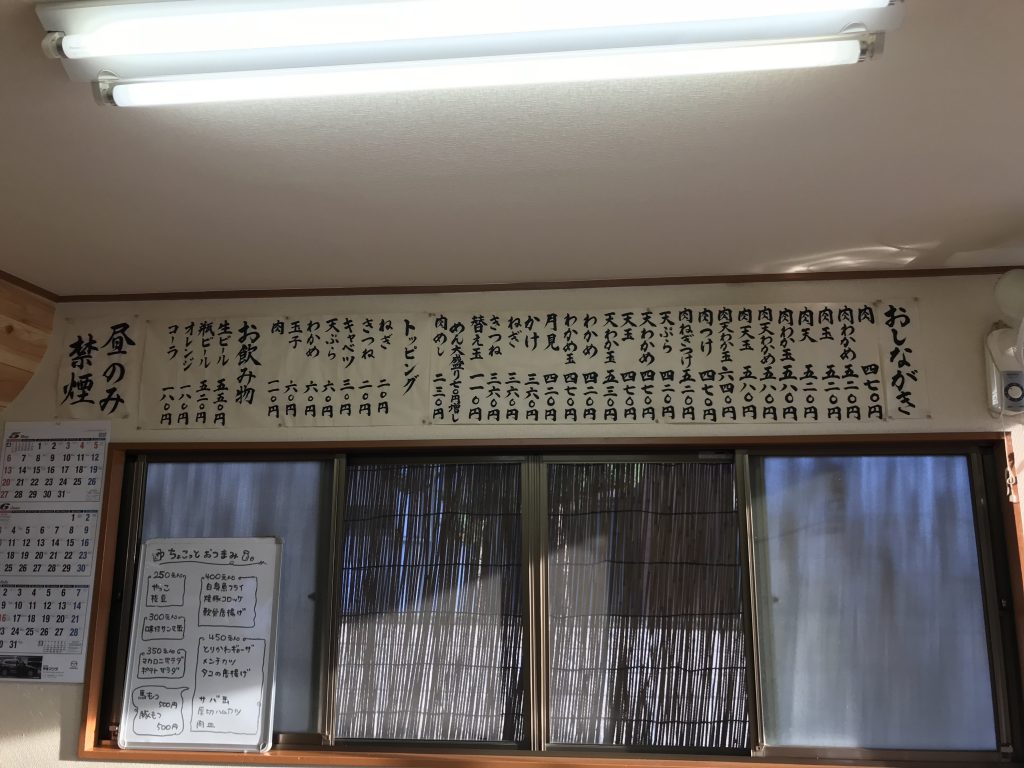 おしながき
肉 四七〇円
肉わかめ 五二〇円
肉玉 五二〇円
肉天 五二〇円
肉わか玉 五八〇円
肉天わかめ 五八〇円
肉天玉 五八〇円
肉天わか玉 六四〇円
肉つけ 四七〇円
肉ねぎつけ 五二〇円
天ぷら 四二〇円
天わかめ 四七〇円
天玉 四七〇円
天わか玉 五三〇円
わかめ 四二〇円
わかめ玉 四七〇円
月見 四二〇円
かけ 三六〇円
ねぎ 三六〇円
きつね 三六〇円
替え玉 一一〇円
めん大盛り七〇円増し
肉めし 二三〇円
トッピング
ねぎ 二〇円
きつね 二〇円
キャベツ 三〇円
天ぷら 六〇円
わかめ 六〇円
玉子 六〇円
肉 一一〇円
お飲み物
生ビール 五五〇円
瓶ビール 五二〇円
オレンジ 一八〇円
コーラ 一八〇円
昼のみ
禁煙
ちょこっとおつまみ
250えん
やっこ
枝豆
300えん
味付サンマ缶
350えん
マカロニサラダ
ポテトサラダ
馬もつ
500円
豚もつ
500円
400えん
白身魚フライ
コロッケ
軟骨唐揚げ
450えん
とりかわギョーザ
メンチカツ
タコの唐揚げ
サバ缶
厚切ハムカツ
肉皿
5
1 2 3 4 5
6 7 8 9 10 11 12
13 14 15 16 17 18 19
20 21 22 23 24 25 26
27 28 29 30 31
6
1 2